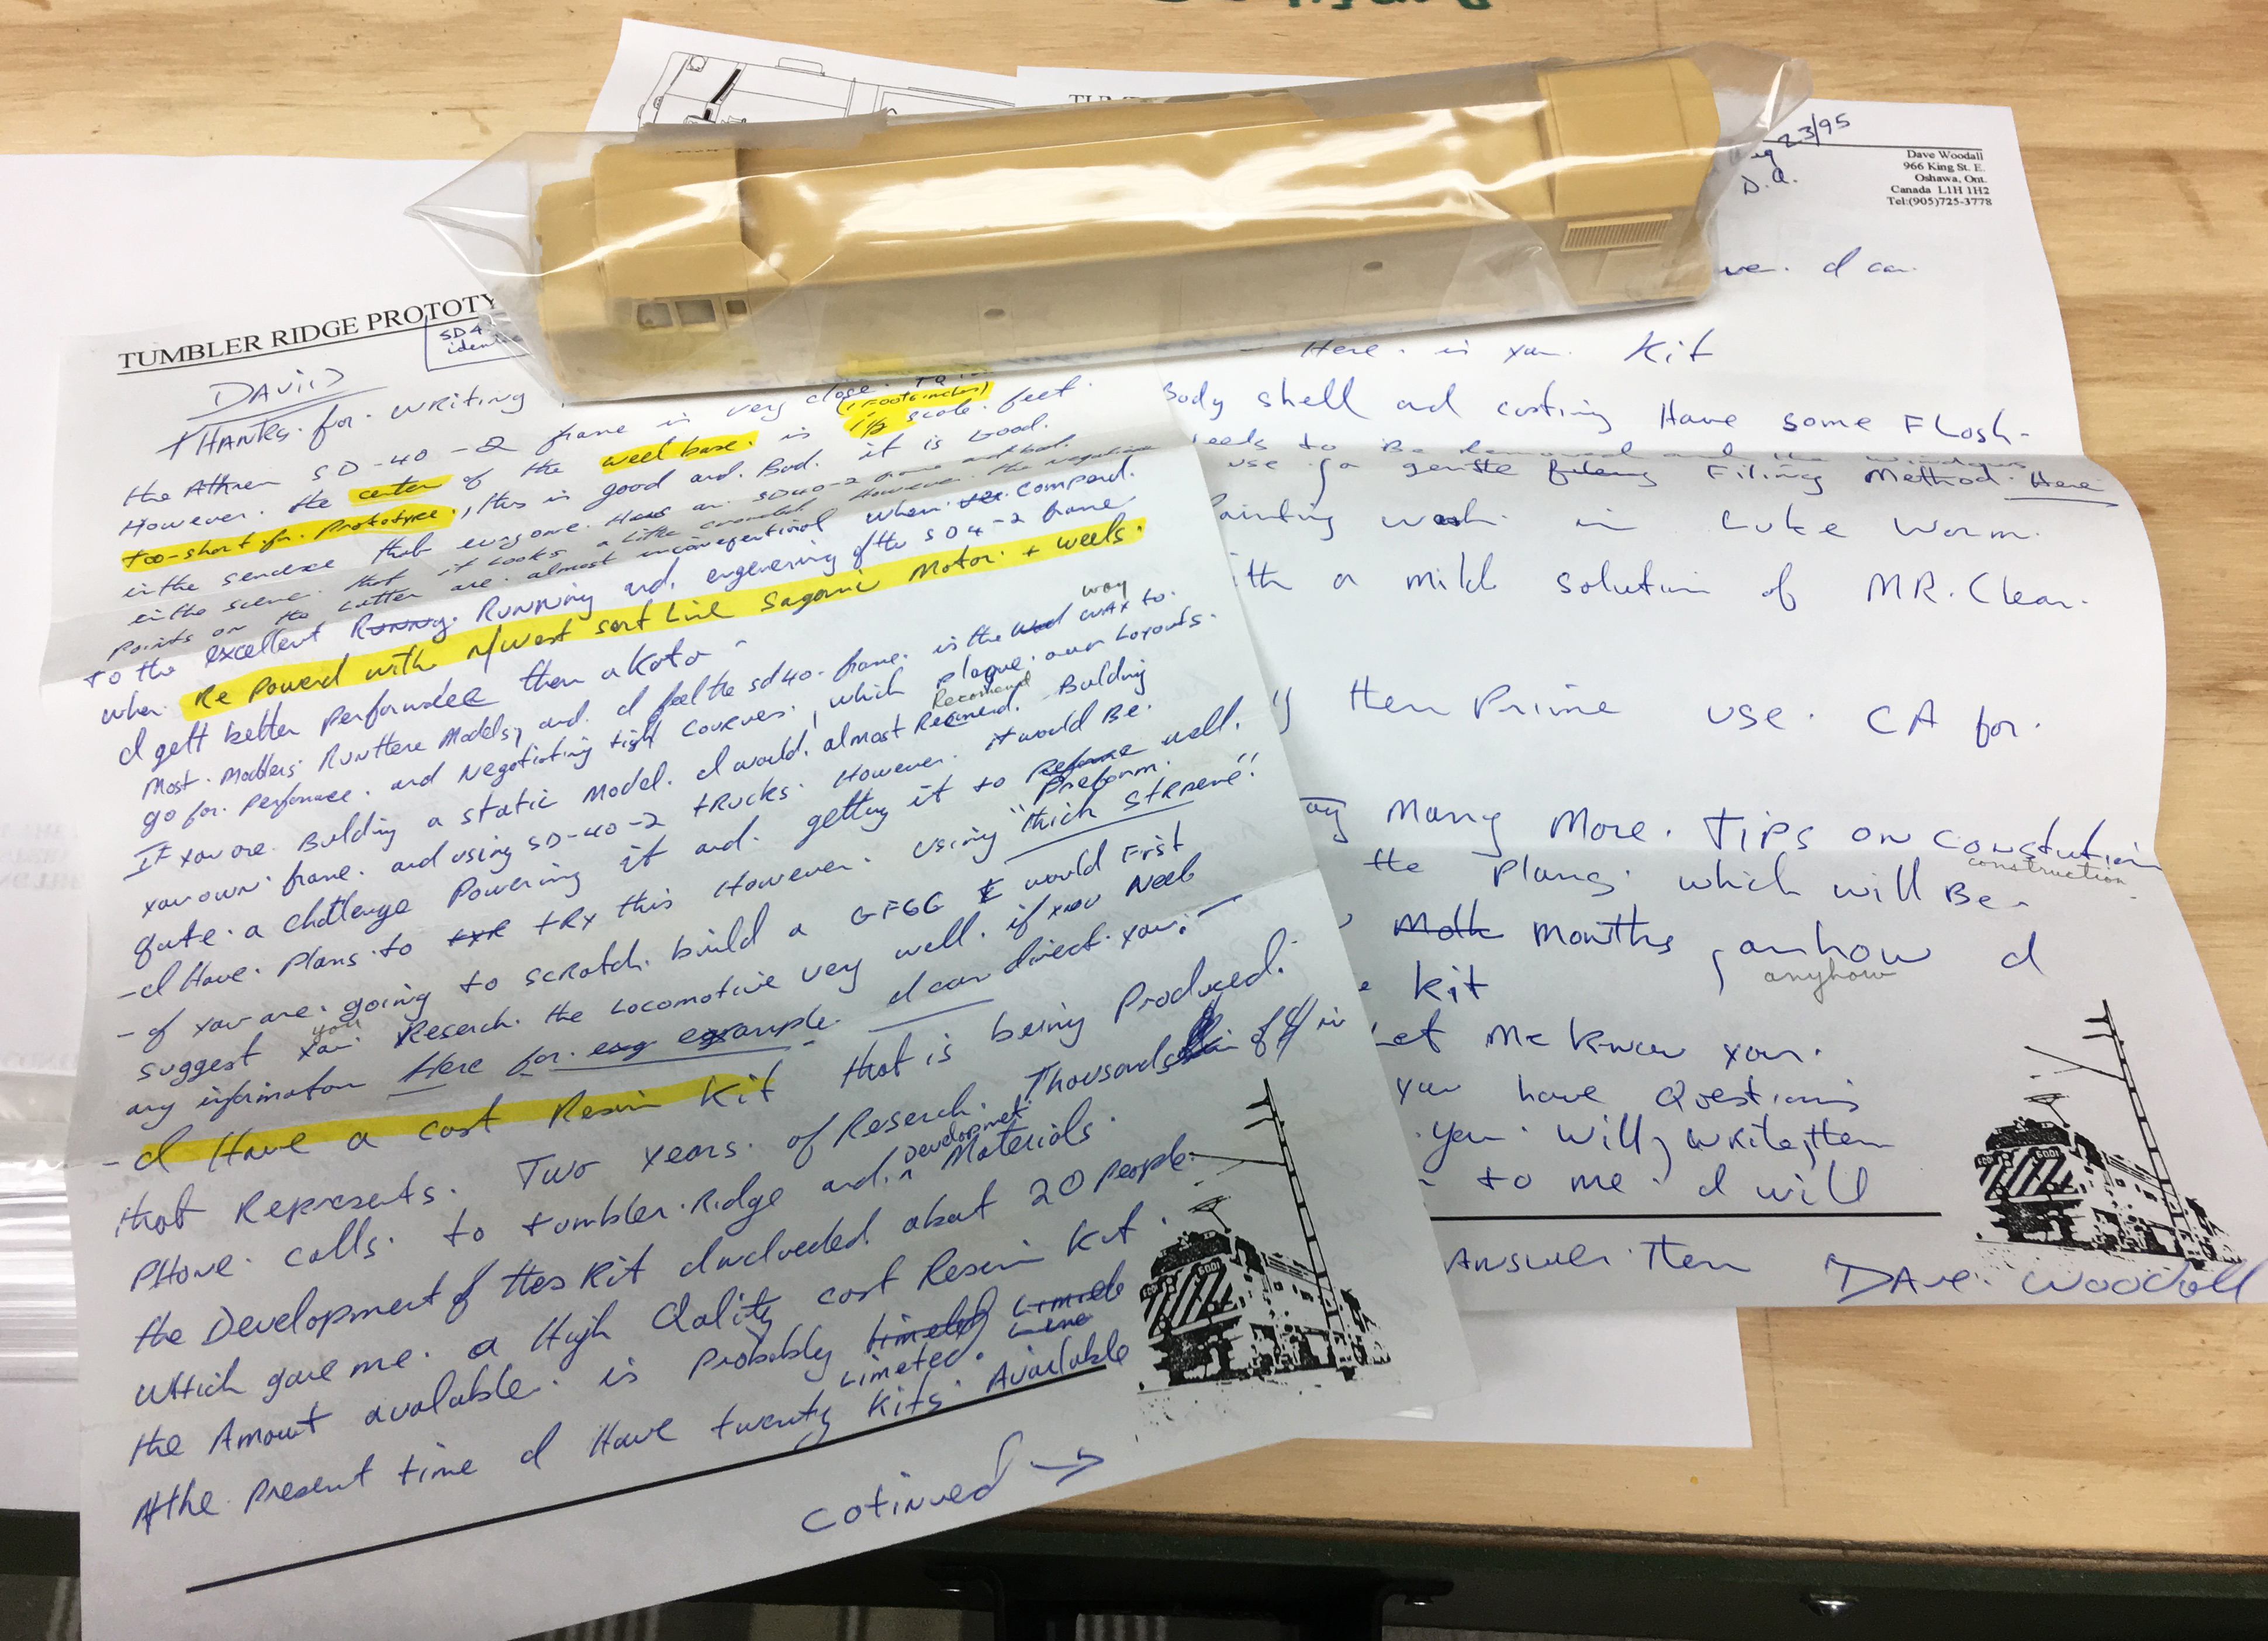 TUMBLER RIDGE PROTOTY
SD4
identi
DAVID
THANKS. for. writing
the Athren SD-40-2 frame is very close.
(1 Foot 6 inches)
However. the center of the weel base. is 1 1/2 scale. feet
too-short. for. prototype., this is good and. Bad. it is Good.
in the sencese that everyone. Has an SD40-2 frame and bad.
in the scene. that it looks a little crowded However. the negative
points on the latter are. almost inconsequential when compard.
to the excellent Running and. engenering of the SD4-2 frame
when Re Powerd with N/West sort Line Sagami Motor. + weels.
I gett better performdee then a Kato -
way
Most. Modlers. Run there Models, and. I feel the sd40. frame. is the way to.
go for. performace. and Negotiating tight courves., which plague. our Layouts.
Recomend
If you are. Bulding a static Model. I would. almost Recmend. Building
your own. frame. and using SD-40-2 trucks. However. it would Be.
quite. a challenge Powering it and. getting it to Preform. well.
-I Have. Plans. to try this However. Using "thick Styrene".
- If you are. going to scratch. build a GF6C I would First
you
suggest you Reserch. the Locomotive very well. if you Need
any information Here for. example. I can direct. you. -
-I Have a cast Resin Kit that is being Produced.
that Represents. Two years. of Reserch. Thousands of $ in
Development
Phone. calls. to tumbler. Ridge and. Materials.
the Development of thes Kit Inclueded about 20 people.
Which gave me. a High Qality cast Resin Kit.
the Amount avalable. is Probably Limeted.
At the. Present time I Have twenty Kits. Available
Cotinued →
TUMB
Aug 23/95
D.A.
Dave Woodall
966 King St. E.
Oshawa, Ont.
Canada L1H 1H2
Tel:(905)725-3778
ve. I can
Here. is your. Kit
Body shell and casting Have some Flash-
needs to Be Removed and the windows
use a gentle Filing Method. Here
Painting wash. in Luke Warm.
ith a mild solution of MR. Clean.
then Prime use. CA for.
Many More. Tips on Constution
construction
the Plans. which will Be.
months, anhow I
anyhow
Kit
Let Me Know your.
you have Questions
you. will, write, them
to me. I will
Answer. Them Dave. Woodall
6001
6001